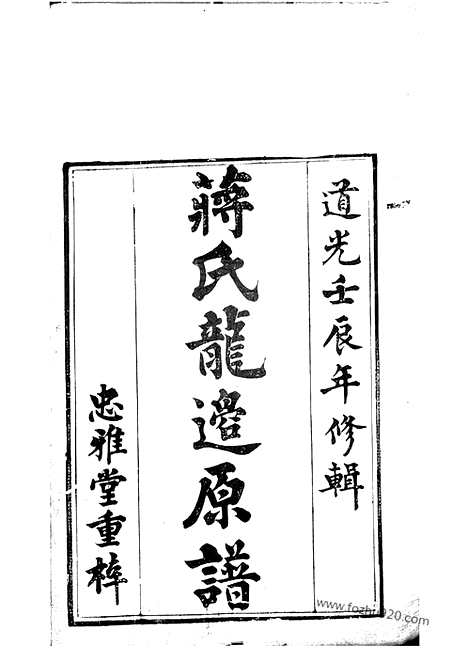 道光壬辰年修輯
蔣氏龍邉原譜
忠雅堂重梓
www.fozhu920.com